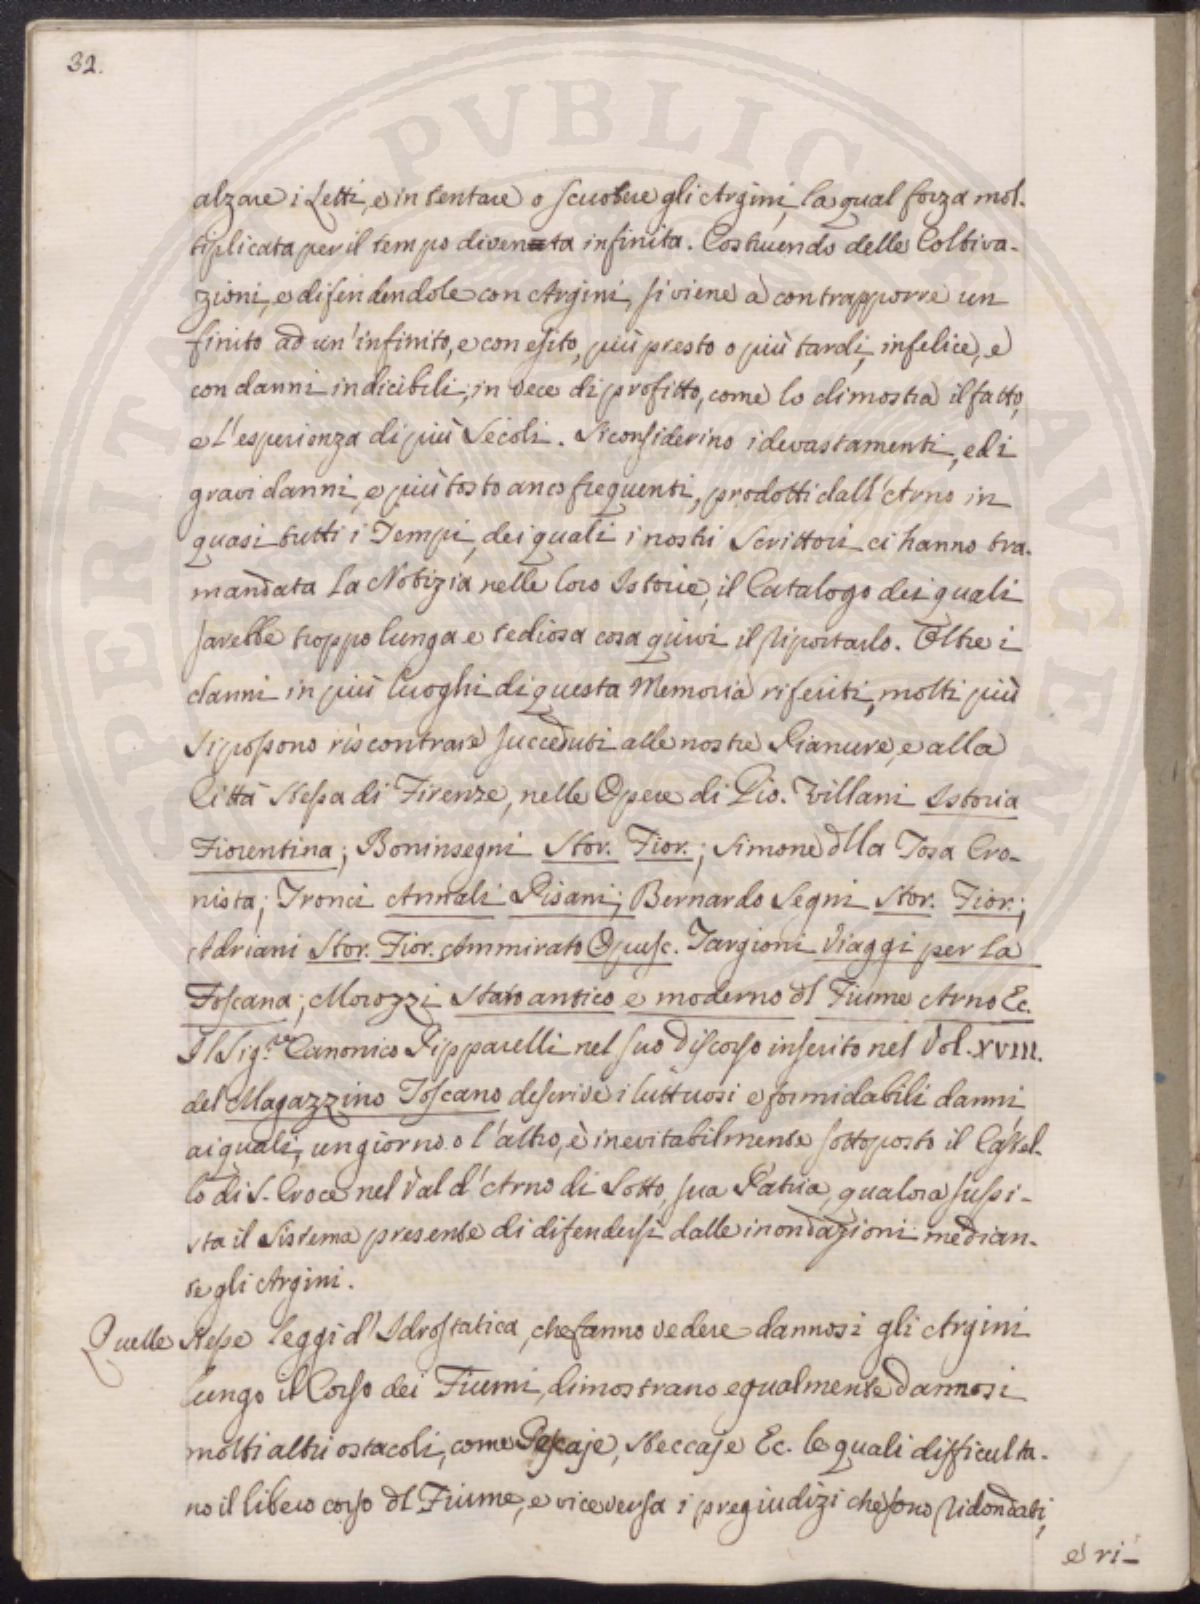 32.
alzare i Letti, e in tentare o scuotere gli Argini, la qual forza mol-
tiplicata per il tempo diventa infinita. Costruendo delle Coltiva-
zioni, e difendendole con Argini, si viene a contrapporre un
finito ad un'infinito, e con esito, più presto o più tardi, infelice, e
con danni indicibili, in vece di profitto, come lo dimostra il fatto,
e l'esperienza di più Secoli. Si considerino i devastamenti, ed i
gravi danni, e più tosto anco frequenti, prodotti dall'Arno in
quasi tutti i Tempi, dei quali i nostri Scrittori ci hanno tra-
mandata la Notizia nelle loro Istorie, il Catalogo dei quali
sarebbe troppo lunga e tediosa cosa quivi il riportarlo. Oltre i
danni in più luoghi di questa Memoria riferiti, molti più
si possono riscontrare succeduti alle nostre Pianure, e alla
Città stessa di Firenze, nelle Opere di Gio. Villani Istoria
Fiorentina; Boninsegni Stor. Fior.; Simone dlla Tosa Cro-
nista; Tronci Annali Pisani; Bernardo Segni Stor. Fior.;
Adriani Stor. Fior. Ammirato Opusc. Targioni Viaggi per la
Toscana; Morozzi Stato antico e moderno dl Fiume Arno Ec.
Il Sig.re Canonico Pipparelli nel suo discorso inserito nel Vol. XVIII.
del Magazzino Toscano descrive i luttuosi e formidabili danni
ai quali, un giorno o l'altro, è inevitabilmente sottoposto il Castel-
lo di S. Croce nel Val d'Arno di Sotto, sua Patria, qualora sussi-
sta il Sistema presente di difendersi dalle inondazioni median-
te gli Argini.
Quelle stesse leggi d'Idrostatica, che fanno vedere dannosi gli Argini
lungo il Corso dei Fiumi, dimostrano egualmente dannosi
molti altri ostacoli, come Pescaje, Steccaje Ec. le quali difficulta-
no il libero corso dl Fiume, e viceversa i pregiudizi che sono ridondati,
e ri-
SPERITAS PVBLICA AVGEN